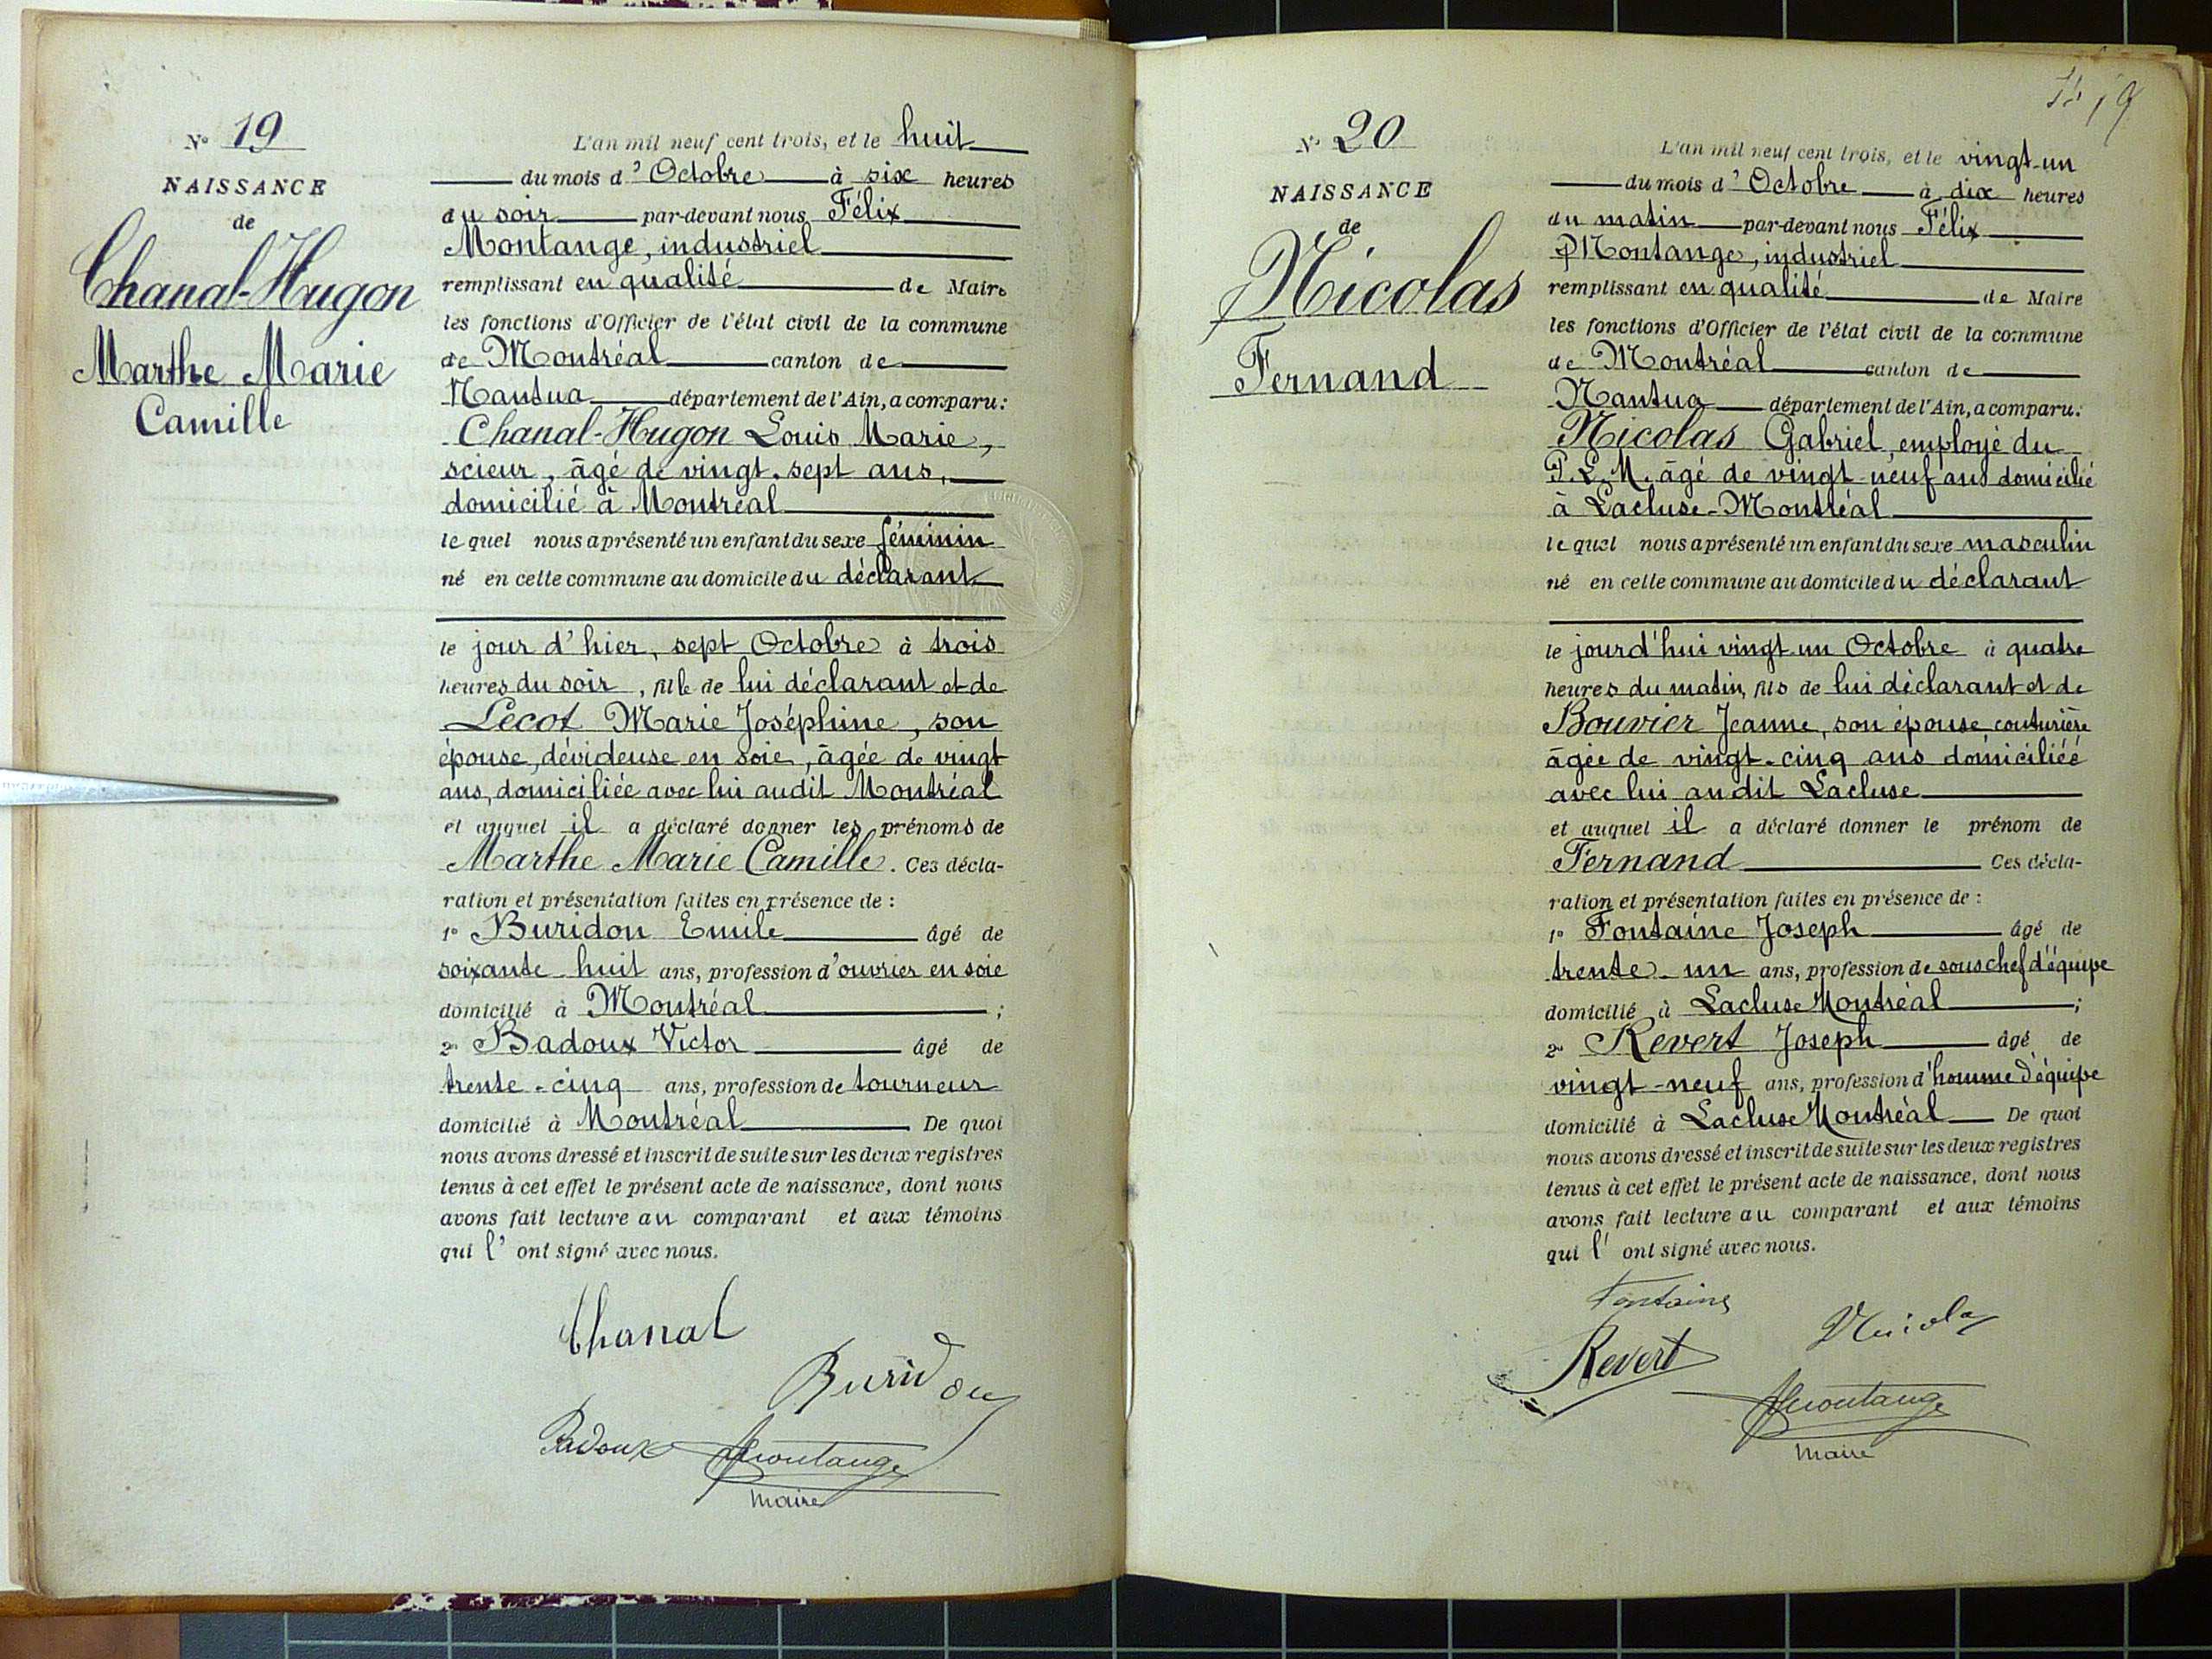 N° 19
NAISSANCE
de
Chanal-Hugon
Marthe Marie
Camille
L'an mil neuf cent trois, et le huit
du mois d'Octobre à six heures
du soir par-devant nous Félix
Montange, industriel
remplissant en qualité de Maire
les fonctions d'Officier de l'état civil de la commune
de Montréal canton de
Nantua département de l'Ain, a comparu:
Chanal-Hugon Louis Marie,
scieur, âgé de vingt-sept ans,
domicilié à Montréal
lequel nous a présenté un enfant du sexe féminin
né en cette commune au domicile du déclarant
le jour d'hier, sept Octobre à trois
heures du soir, fille de lui déclarant et de
Lecot Marie Joséphine, son
épouse, dévideuse en soie, âgée de vingt
ans, domiciliée avec lui audit Montréal
et auquel il a déclaré donner les prénoms de
Marthe Marie Camille. Ces décla-
ration et présentation faites en présence de :
1° Buridon Emile âgé de
soixante huit ans, profession d'ouvrier en soie
domicilié à Montréal ;
2° Badoux Victor âgé de
trente-cinq ans, profession de tourneur
domicilié à Montréal De quoi
nous avons dressé et inscrit de suite sur les deux registres
tenus à cet effet le présent acte de naissance, dont nous
avons fait lecture au comparant et aux témoins
qui l'ont signé avec nous.
Chanal
Buridon
Badoux Montange
Maire
19
N° 20
NAISSANCE
de
Nicolas
Fernand
L'an mil neuf cent trois, et le vingt-un
du mois d'Octobre à dix heures
du matin par-devant nous Félix
Montange, industriel
remplissant en qualité de Maire
les fonctions d'Officier de l'état civil de la commune
de Montréal canton de
Nantua département de l'Ain, a comparu:
Nicolas Gabriel, employé du
P. L. M. âgé de vingt-neuf ans domicilié
à Lacluse-Montréal
lequel nous a présenté un enfant du sexe masculin
né en cette commune au domicile du déclarant
le jourd'hui vingt-un Octobre à quatre
heures du matin, fils de lui déclarant et de
Bouvier Jeanne, son épouse, couturière
âgée de vingt-cinq ans domiciliée
avec lui audit Lacluse
et auquel il a déclaré donner le prénom de
Fernand Ces décla-
ration et présentation faites en présence de :
1° Fontaine Joseph âgé de
trente-un ans, profession de sous chef d'équipe
domicilié à Lacluse Montréal ;
2° Revert Joseph âgé de
vingt-neuf ans, profession d'homme d'équipe
domicilié à Lacluse Montréal De quoi
nous avons dressé et inscrit de suite sur les deux registres
tenus à cet effet le présent acte de naissance, dont nous
avons fait lecture au comparant et aux témoins
qui l'ont signé avec nous.
Fontaine
Nicolas
Revert
Montange
Maire